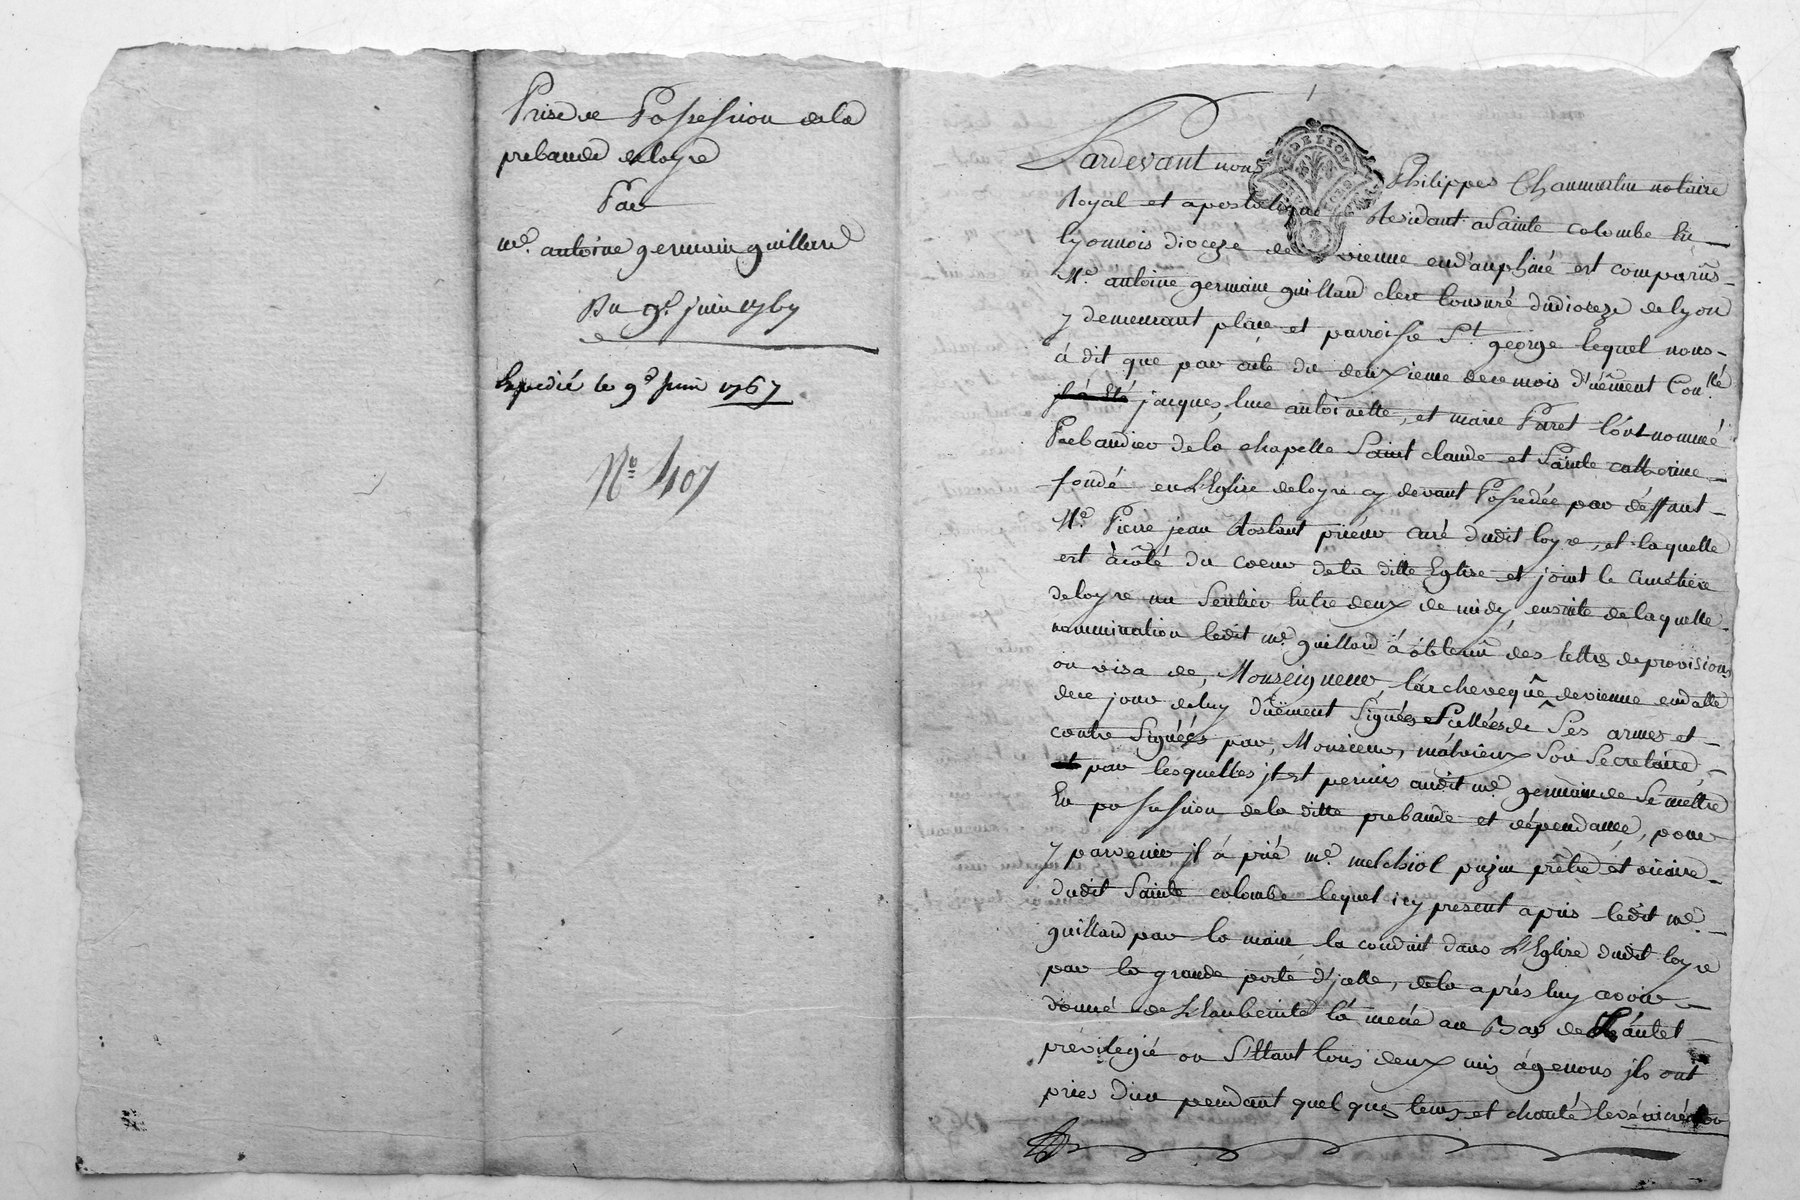 Prise de Possession de la
prebande de loyre
Par
me. antoine germain guillard
Du 9e. juin 1767
Expedié le 9e Juin 1767
No. 407
Pardevant nous Philippes Chaumartin notaire
Royal et apostolique Residant a Sainte colombe En
lyonnois dioceze de vienne en d'auphiné est comparus
Me. antoine germain guillard clerc tonsuré du dioceze de lyon
y demeurant place et parroisse St. george lequel nous
á dit que par acte du deuxieme de ce mois d'uêment Conllé
jl á Eté jacques, luce antoinette, et marie Paret l'ont nommé
Prebandier de la chapelle Saint claude et Sainte catherine
fondé en L'Eglise de loyre cy devant Possedée par déffunt
Me. Pierre jean Rostant prieur curé dudit loyre, et laquelle
est à côté du coeur de la ditte Eglise et joint le cimetière
de loyre un Sentier Entre deux de midy, ensuite de laquelle
nommination ledit me. guillard à óbtenu des lettres de provisions
ou visa de, Monseigneur, l'archeveque de vienne en datte
de ce jour de luy duëment Signées Scellées de Ses armes et
contre Signéés par, Monsieur, malvieux Son Secretaire,
et par lesquelles jl est permis audit me. germain de Se mettre
En possession de la ditte prebande et dépendance, pour
y parvenir jl á prié me. melchiol pujin prêtre et vicaire
dudit Sainte colombe lequel icy present a pris ledit me.
guillard par la main la conduit dans L'Eglise dudit loyre
par la grande porte d'jcelle, de la aprés luy avoir
donné de L'Eau benite lá mené au Bas de L'áutel
previlegié ou S'Etant tous deux mis ágenous jls ont
priés dieu pendant quelques tems et chanté le véni créator